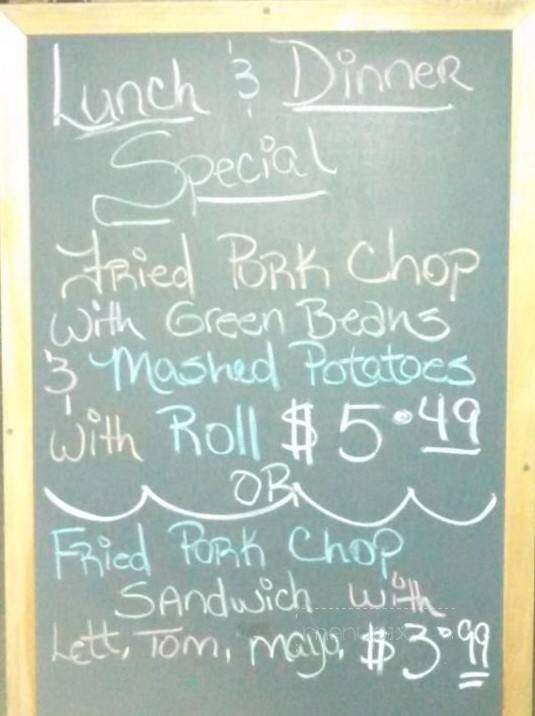 Lunch & Dinner
Special
Fried Pork Chop
with Green Beans
& Mashed Potatoes
with Roll $5.49
OR
Fried Pork Chop
Sandwich with
Lett, Tom, mayo, $3.99